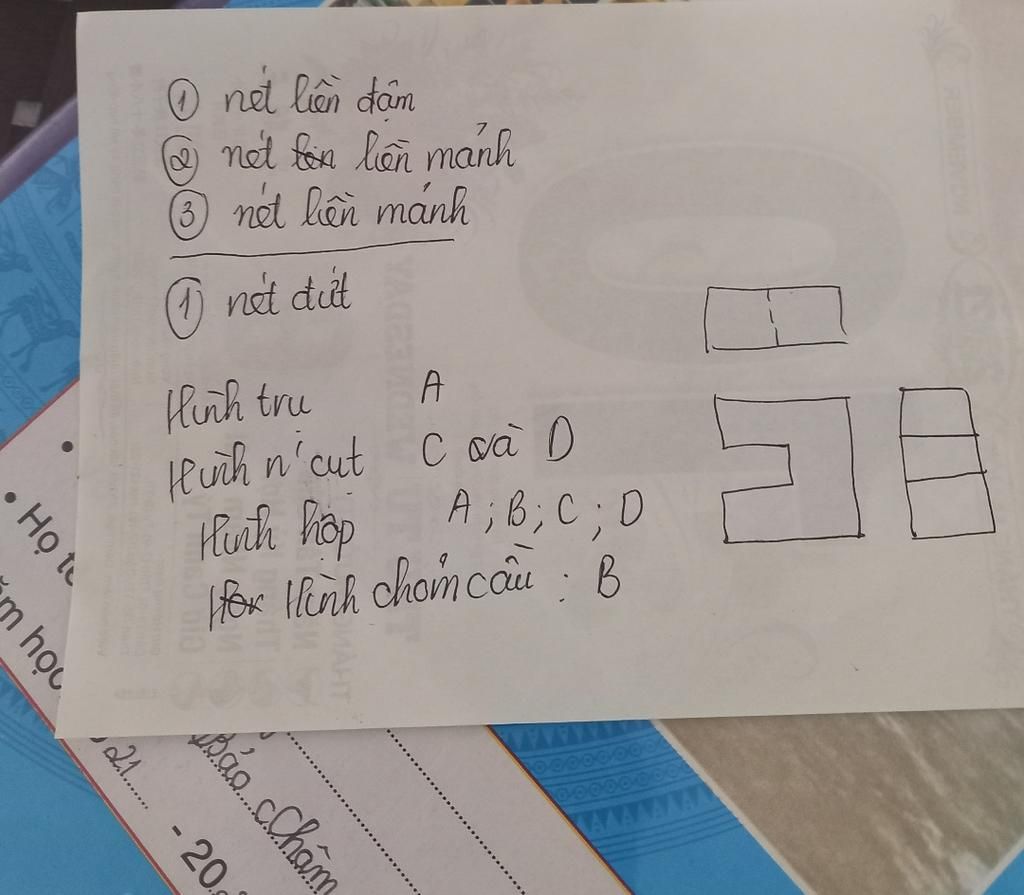 ① nét liền đậm
② nét liền mảnh
③ nét liền mảnh
① nét đứt
Hình trụ A
Hình n' cụt C và D
Hình hộp A; B; C; D
Hình chỏm cầu: B
• Họ tê
ăm học
21......
Bảo Châm
- 20
NOVEMBER
WEDNESDAY